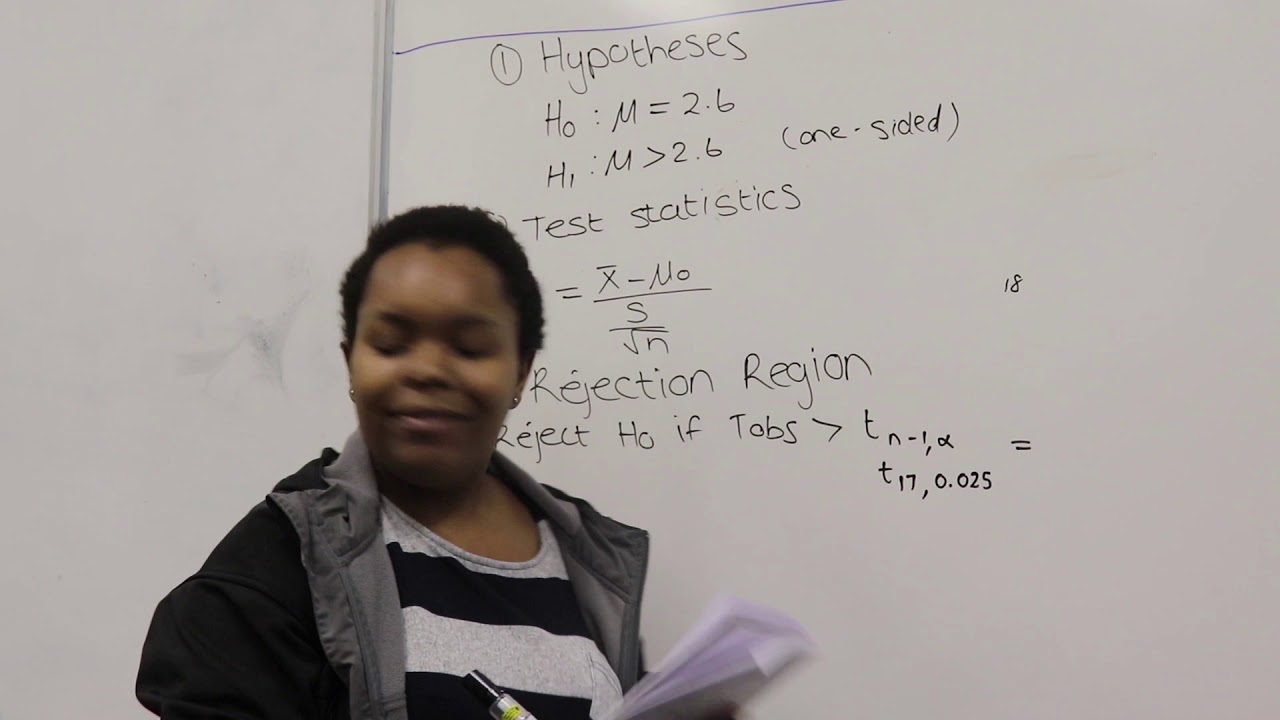 ① Hypotheses
H₀ : μ = 2.6
H₁ : μ > 2.6 (one-sided)
Test statistics
= (x̄ - μ₀) / (s / √n)
18
Rejection Region
Reject H₀ if Tobs > t n-1, α =
t 17, 0.025